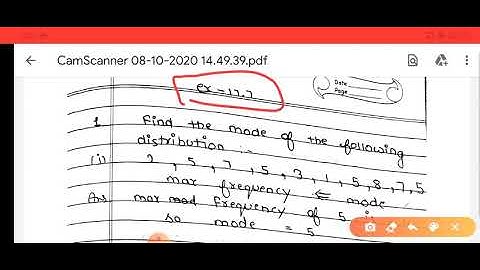 CamScanner 08-10-2020 14.49.39.pdf
Date
Page
ex - 17.7
1 Find the mode of the following
distribution :-
(i) 2, 5, 7, 5, 3, 1, 5, 8, 7, 5
max frequency ← mode
Ans max mod frequency of 5 is
so mode = 5